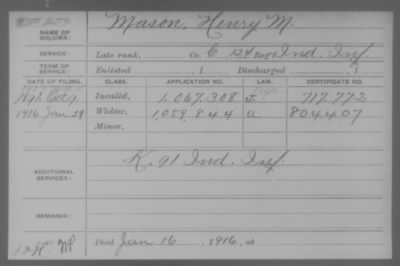 Mason, Henry M.
NAME OF SOLDIER:
SERVICE: Late rank, Co. C, 124 Reg't Ind. Inf.
TERM OF SERVICE: Enlisted 1 Discharged , 1
DATE OF FILING. CLASS. APPLICATION NO. LAW. CERTIFICATE NO.
1891 Oct 9. Invalid, 1,067,308 717,772
1916 Jan 29 Widow, 1,059,844 a 804407
Minor,
ADDITIONAL SERVICES: K. 91 Ind. Inf.
REMARKS:
Died Jan 16, 1916, at